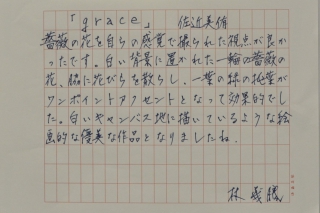 「grace」 佐近美侑
薔薇の花を自らの感覚で撮られた視点が良か
ったです。白い背景に置かれた一輪の薔薇の
花、脇に花がらを散らし、一葉の緑の
ワンポイントアクセントとなって効果的でし
た。白いキャンバス地に描いているような絵
画的な優美な作品となりましたね。
林 義勝